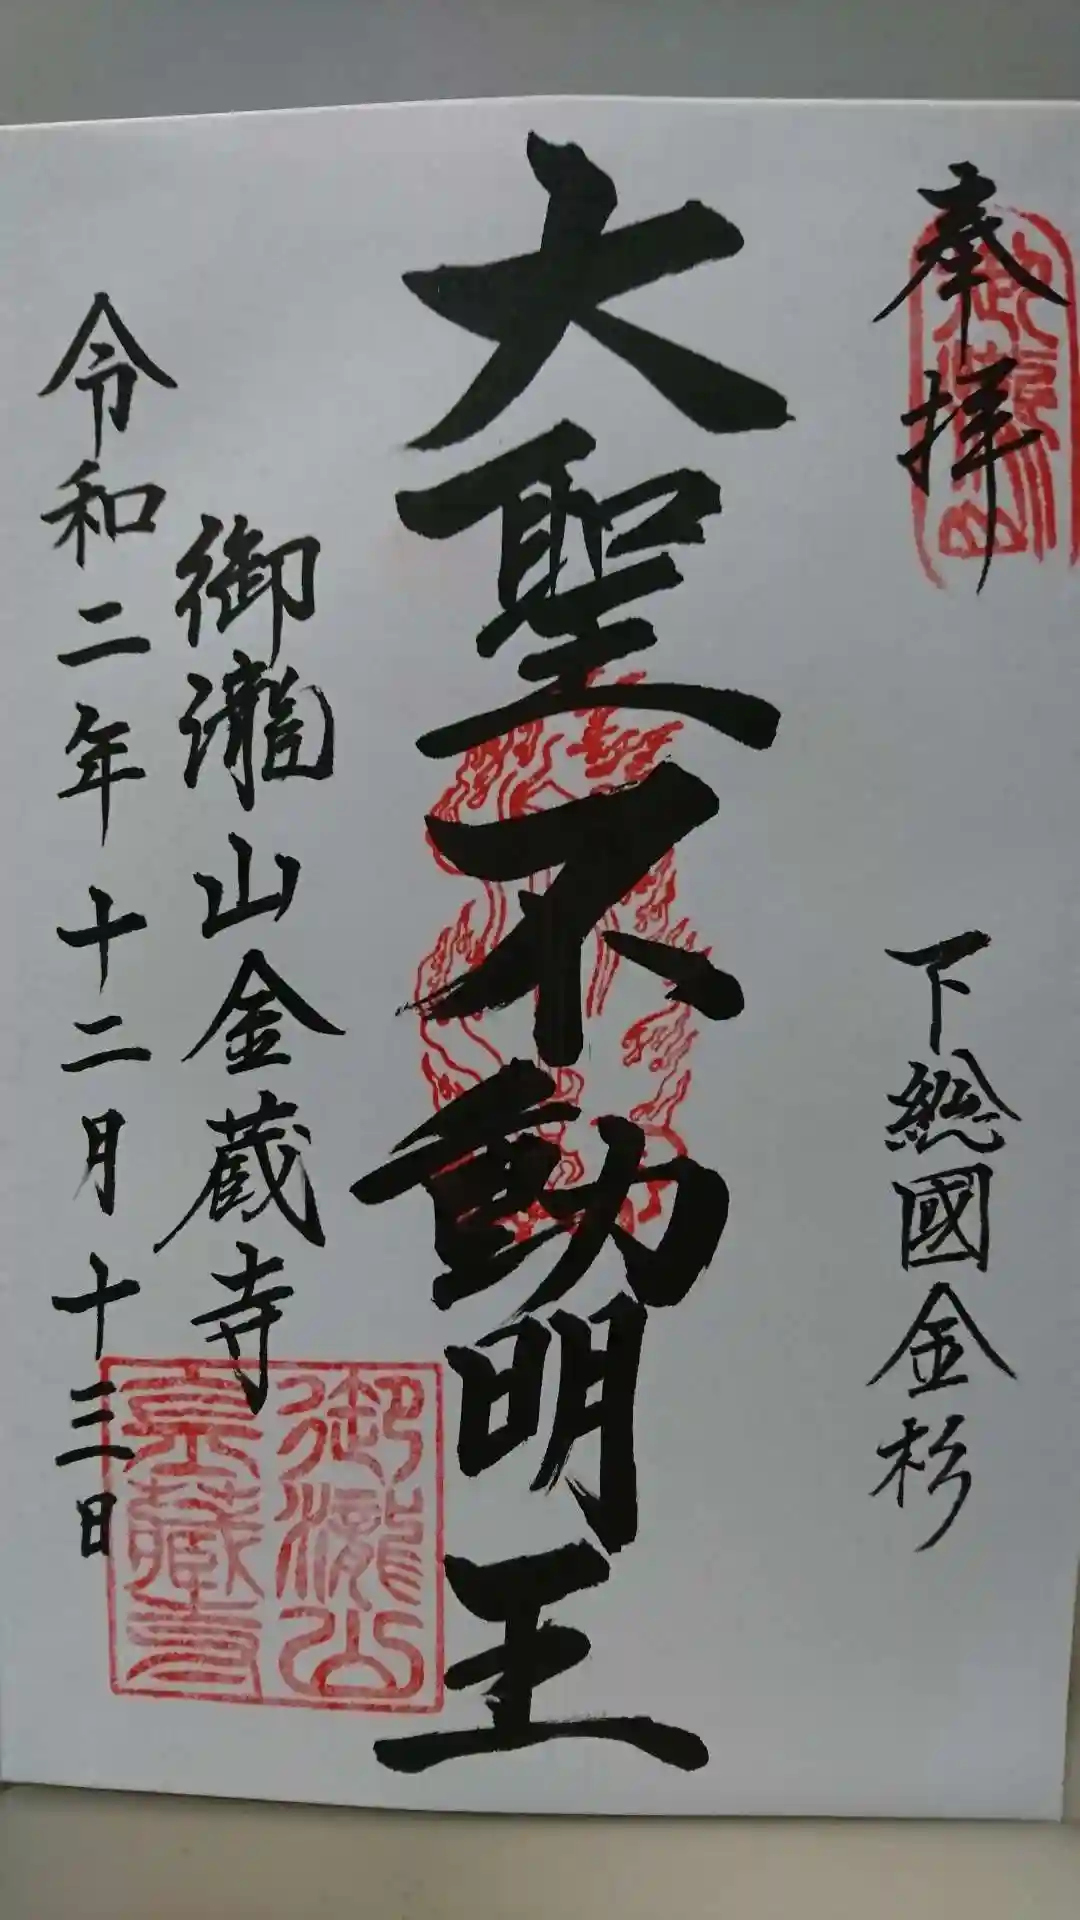 奉拝
下総國金杉
大聖不動明王
御瀧山金蔵寺
令和二年十二月十三日
御瀧山
御瀧山
金藏寺